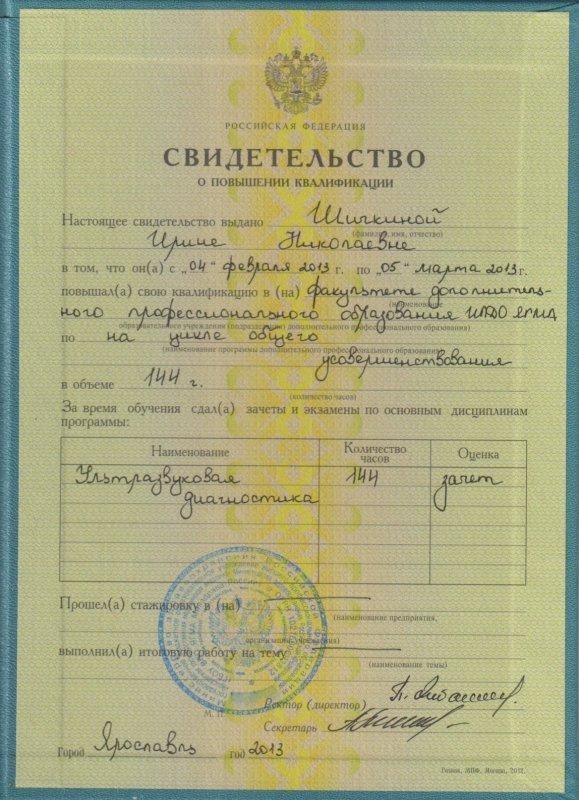 РОССИЙСКАЯ ФЕДЕРАЦИЯ
СВИДЕТЕЛЬСТВО
О ПОВЫШЕНИИ КВАЛИФИКАЦИИ
Настоящее свидетельство выдано Шичкиной
(фамилия, имя, отчество)
Ирине Николаевне
в том, что он(а) с „04“ февраля 2013 г. по „05“ марта 2013 г.
повышал(а) свою квалификацию в (на) факультете дополнитель-
(наименование
ного профессионального образования ИПДО ЯГМА
образовательного учреждения (подразделения) дополнительного профессионального образования)
по на цикле общего
(наименование программы дополнительного профессионального образования)
усовершенствования
в объеме 144 г.
(количество часов)
За время обучения сдал(а) зачеты и экзамены по основным дисциплинам
программы:
Наименование Количество часов Оценка
Ультразвуковая 144 зачет
диагностика
Прошел(а) стажировку в (на)
(наименование предприятия,
организации, учреждения)
выполнил(а) итоговую работу на тему
(наименование темы)
Ректор (директор)
М. П.
Секретарь
Город Ярославль год 2013
Гознак, МПФ, Москва, 2012.